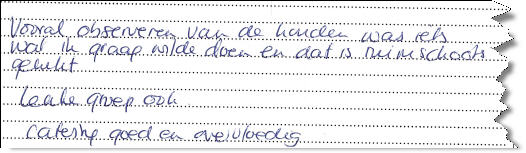 Vooral observeren van de honden was iets
wat ik graag wilde doen en dat is ruimschoots
gelukt
Leuke groep ook
Catering goed en overvloedig